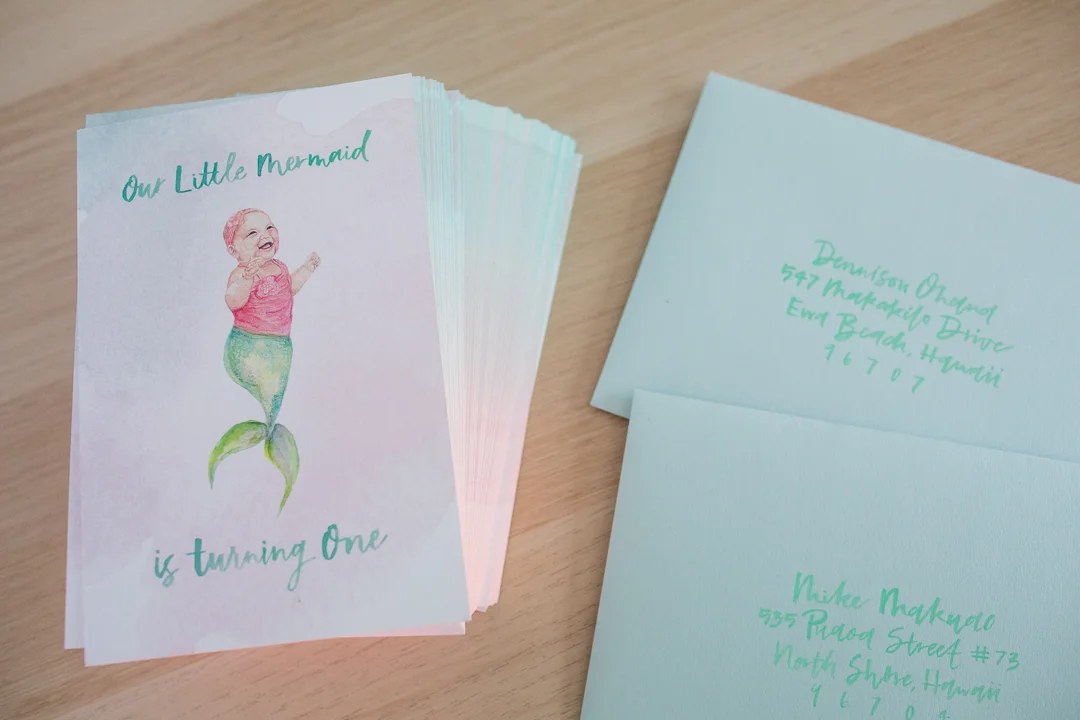 Our Little Mermaid
is turning One
Dennison Ohana
547 Makakilo Drive
Ewa Beach, Hawaii
96707
Mike Makudo
535 Street #73
North Shore, Hawaii
9670